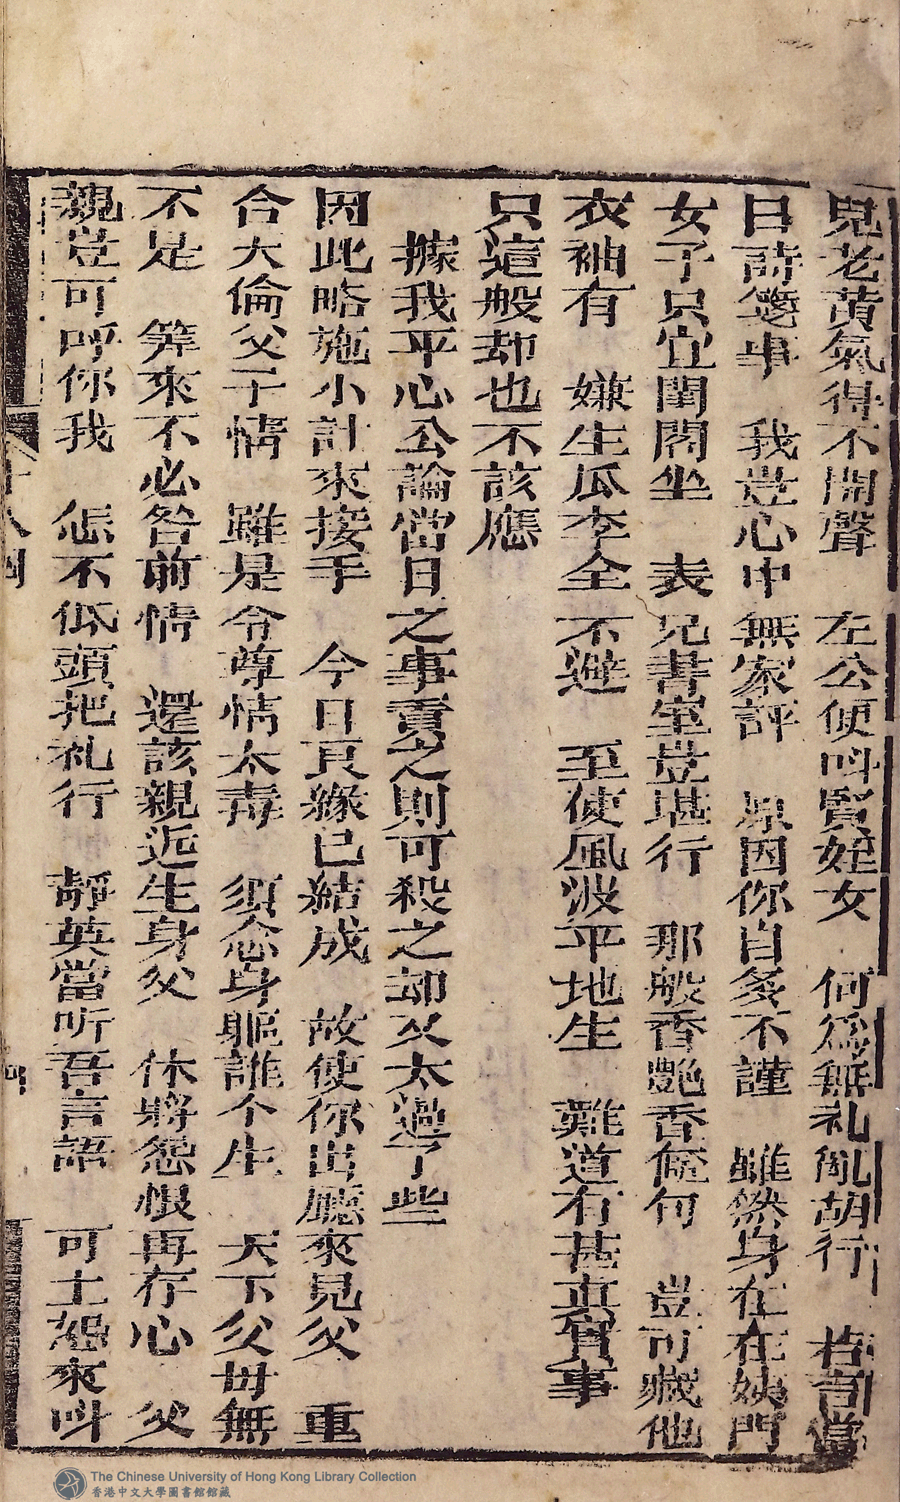 兒老黄氣得不開聲　左公便呌賢姪女　何爲無礼亂胡行　當
日詩箋事　我豈心中無家評　原因你自多不謹　雖然身在在姨門
女子只宜閨閣坐　表兄書室豈堪行　那般香艶香何　豈可藏他
衣袖有　嫌生瓜李全不避　至使風波平地生　難道有甚真實事
只這般却也不該應
據我平心公論當日之事責之則可殺之却又太過了些
因此略施小計來接手　今日良緣已結成　故使你出廳來見父　重
合天倫父子情　雖是令尊情太毒　須念身軀誰个生　天下父母無
不是　筭來不必咎前情　還該親近生身父　休將怨恨再存心　父
親豈可呼你我　怎不低頭把礼行　靜英當听吾言語　可土恕來呌
十八
The Chinese University of Hong Kong Library Collection
香港中文大學圖書館館藏